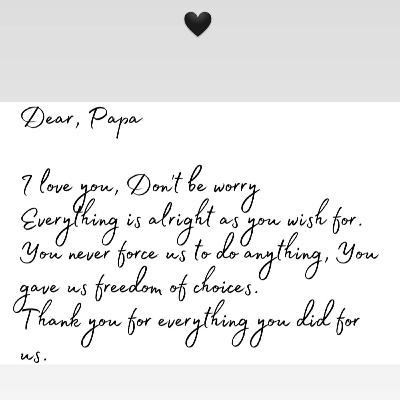 Dear, Papa
I love you, Don't be worry
Everything is alright as you wish for.
You never force us to do anything, You
gave us freedom of choices.
Thank you for everything you did for
us.